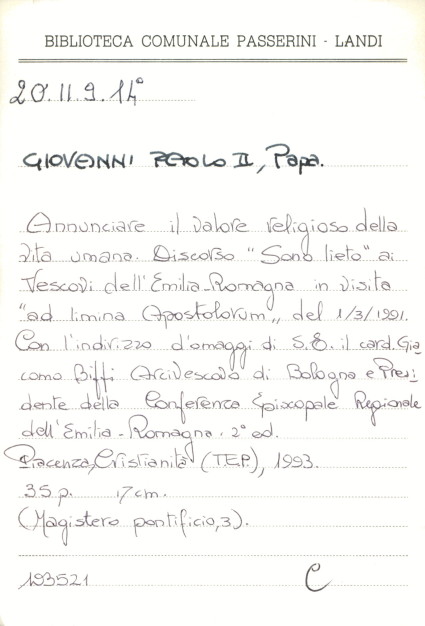 BIBLIOTECA COMUNALE PASSERINI - LANDI
20.II.9.14°
GIOVANNI PAOLO II, Papa.
Annunciare il valore religioso della
vita umana. Discorso "Sono lieto" ai
Vescovi dell'Emilia-Romagna in visita
"ad limina Apostolorum", del 1/3/1991.
Con l'indirizzo d'omaggi di S.E. il card. Gia
como Biffi Arcivescovo di Bologna e Presi
dente della Conferenza Episcopale Regionale
dell'Emilia-Romagna. 2° ed.
Piacenza, Cristianità (T.E.P.), 1993.
35 p. 17 cm.
(Magistero pontificio, 3).
193521 C